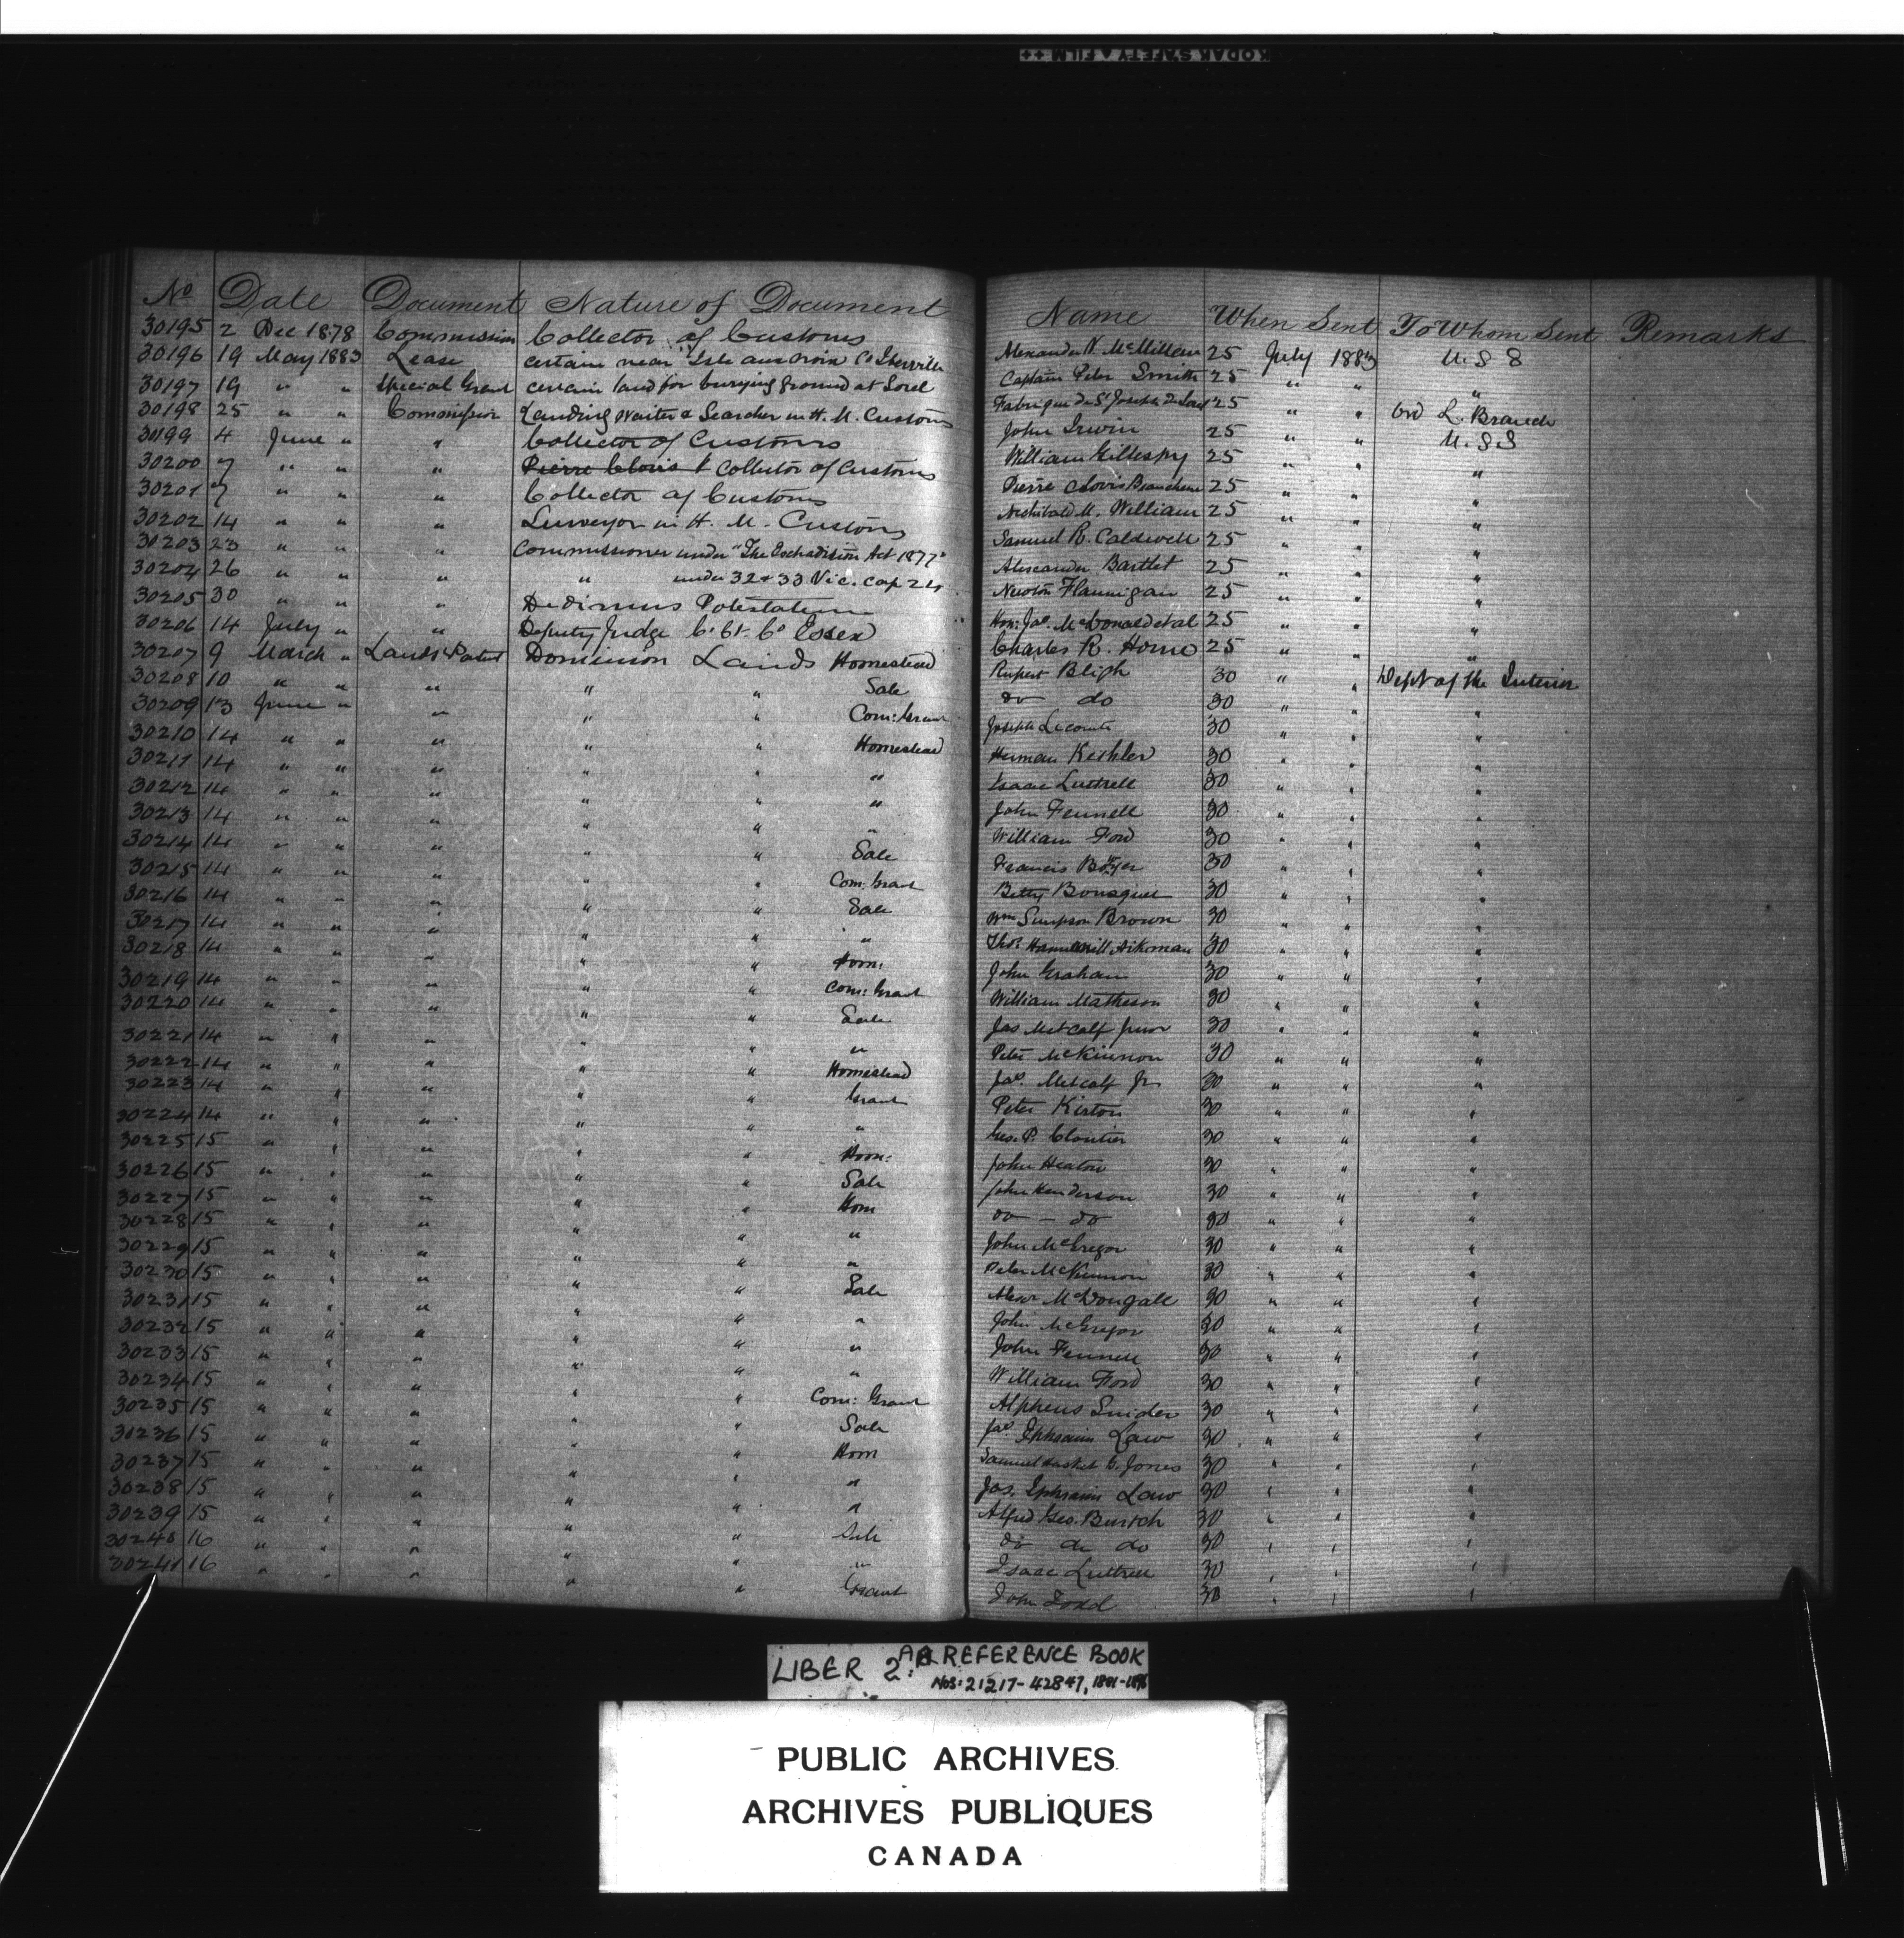 KODAK SAFETY FILM ++
No Date Document Nature of Document Name When Sent To Whom Sent Remarks
30195 2 Dec 1878 Commission Collector of Customs Alexander N. McMillan 25 July 1883 U. S S
30196 19 May 1883 Lease certain near Isle aux Noix Co Iberville Captain Peter Smith 25 " " "
30197 19 " " Special Grant certain land for burying ground at Sorel Fabrique de St Joseph de Sorel 25 " " Ord L. Branch
30198 25 " " Commission Landing Waiter & Searcher in H. M. Customs John Irwin 25 " " U. S S
30199 4 June " " Collector of Customs William Gillespy 25 " " "
30200 7 " " " Pierre Clovis Collector of Customs Pierre Clovis Beauchesne 25 " " "
30201 7 " " " Collector of Customs Archibald M. William 25 " " "
30202 14 " " " Surveyor in H. M. Customs Samuel R. Caldwell 25 " " "
30203 23 " " " Commissioner under "The Extradition Act 1877" Alexander Bartlet 25 " " "
30204 26 " " " " under 32 & 33 Vic. cap 24 Newton Flannigan 25 " " "
30205 30 " " " Dedimus Potestatem Hon: Jas. McDonald et al 25 " " "
30206 14 July " " Deputy Judge C. Ct. Co Essex Charles R. Horne 25 " " "
30207 9 March " Lands Patent Dominion Lands Homestead Rupert Bligh 30 " " Dept of the Interior
30208 10 " " " " " Sale do do 30 " " "
30209 13 June " " " " Com: Grant Joseph Lecomte 30 " " "
30210 14 " " " " " Homestead Herman Keshler 30 " " "
30211 14 " " " " " " Isaac Luttrell 30 " " "
30212 14 " " " " " " John Fennell 30 " " "
30213 14 " " " " " " William Ford 30 " " "
30214 14 " " " " " Sale Francis 30 " " "
30215 14 " " " " " Com: Grant Betty Bousquet 30 " " "
30216 14 " " " " " Sale Wm Simpson Brown 30 " " "
30217 14 " " " " " " Thos. Hammill Aikman 30 " " "
30218 14 " " " " " Hom: John Graham 30 " " "
30219 14 " " " " " Com: Grant William Matheson 30 " " "
30220 14 " " " " " Sale Jas Metcalf junr 30 " " "
30221 14 " " " " " " Peter McKinnon 30 " " "
30222 14 " " " " " Homestead Jas. Metcalf Jr 30 " " "
30223 14 " " " " " Grant Peter Kirton 30 " " "
30224 14 " " " " " " Geo. P. Cloutier 30 " " "
30225 15 " " " " " Hom: John Heaton 30 " " "
30226 15 " " " " " Sale John Henderson 30 " " "
30227 15 " " " " " Hom do - do 30 " " "
30228 15 " " " " " " John McGregor 30 " " "
30229 15 " " " " " " Peter McKinnon 30 " " "
30230 15 " " " " " Sale Alexr McDougall 30 " " "
30231 15 " " " " " " John McGregor 30 " " "
30232 15 " " " " " " John Fennell 30 " " "
30233 15 " " " " " " William Ford 30 " " "
30234 15 " " " " " Com: Grant Alpheus Snider 30 " " "
30235 15 " " " " " Sale Jas Ephraim Law 30 " " "
30236 15 " " " " " Hom Samuel G. Jones 30 " " "
30237 15 " " " " " " Jas. Ephraim Law 30 " " "
30238 15 " " " " " " Alfred Geo. Burtch 30 " " "
30239 15 " " " " " Sale do do do 30 " " "
30240 16 " " " " " " Isaac Luttrell 30 " " "
30241 16 " " " " " Grant John Todd 30 " " "
LIBER 2: REFERENCE BOOK
NOS: 21217-42847, 1881-1896
PUBLIC ARCHIVES
ARCHIVES PUBLIQUES
CANADA